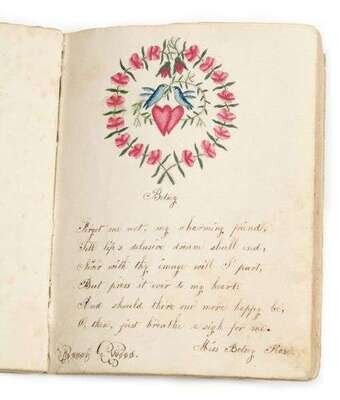 Betsy
Forget me not, my charming friend,
Till life's delusive dream shall end;
Now with thy image will I part,
But press it ever to my heart.
And should there one more happy be,
O, then, just breathe a sigh for me.
Miss Betsy
Wood.